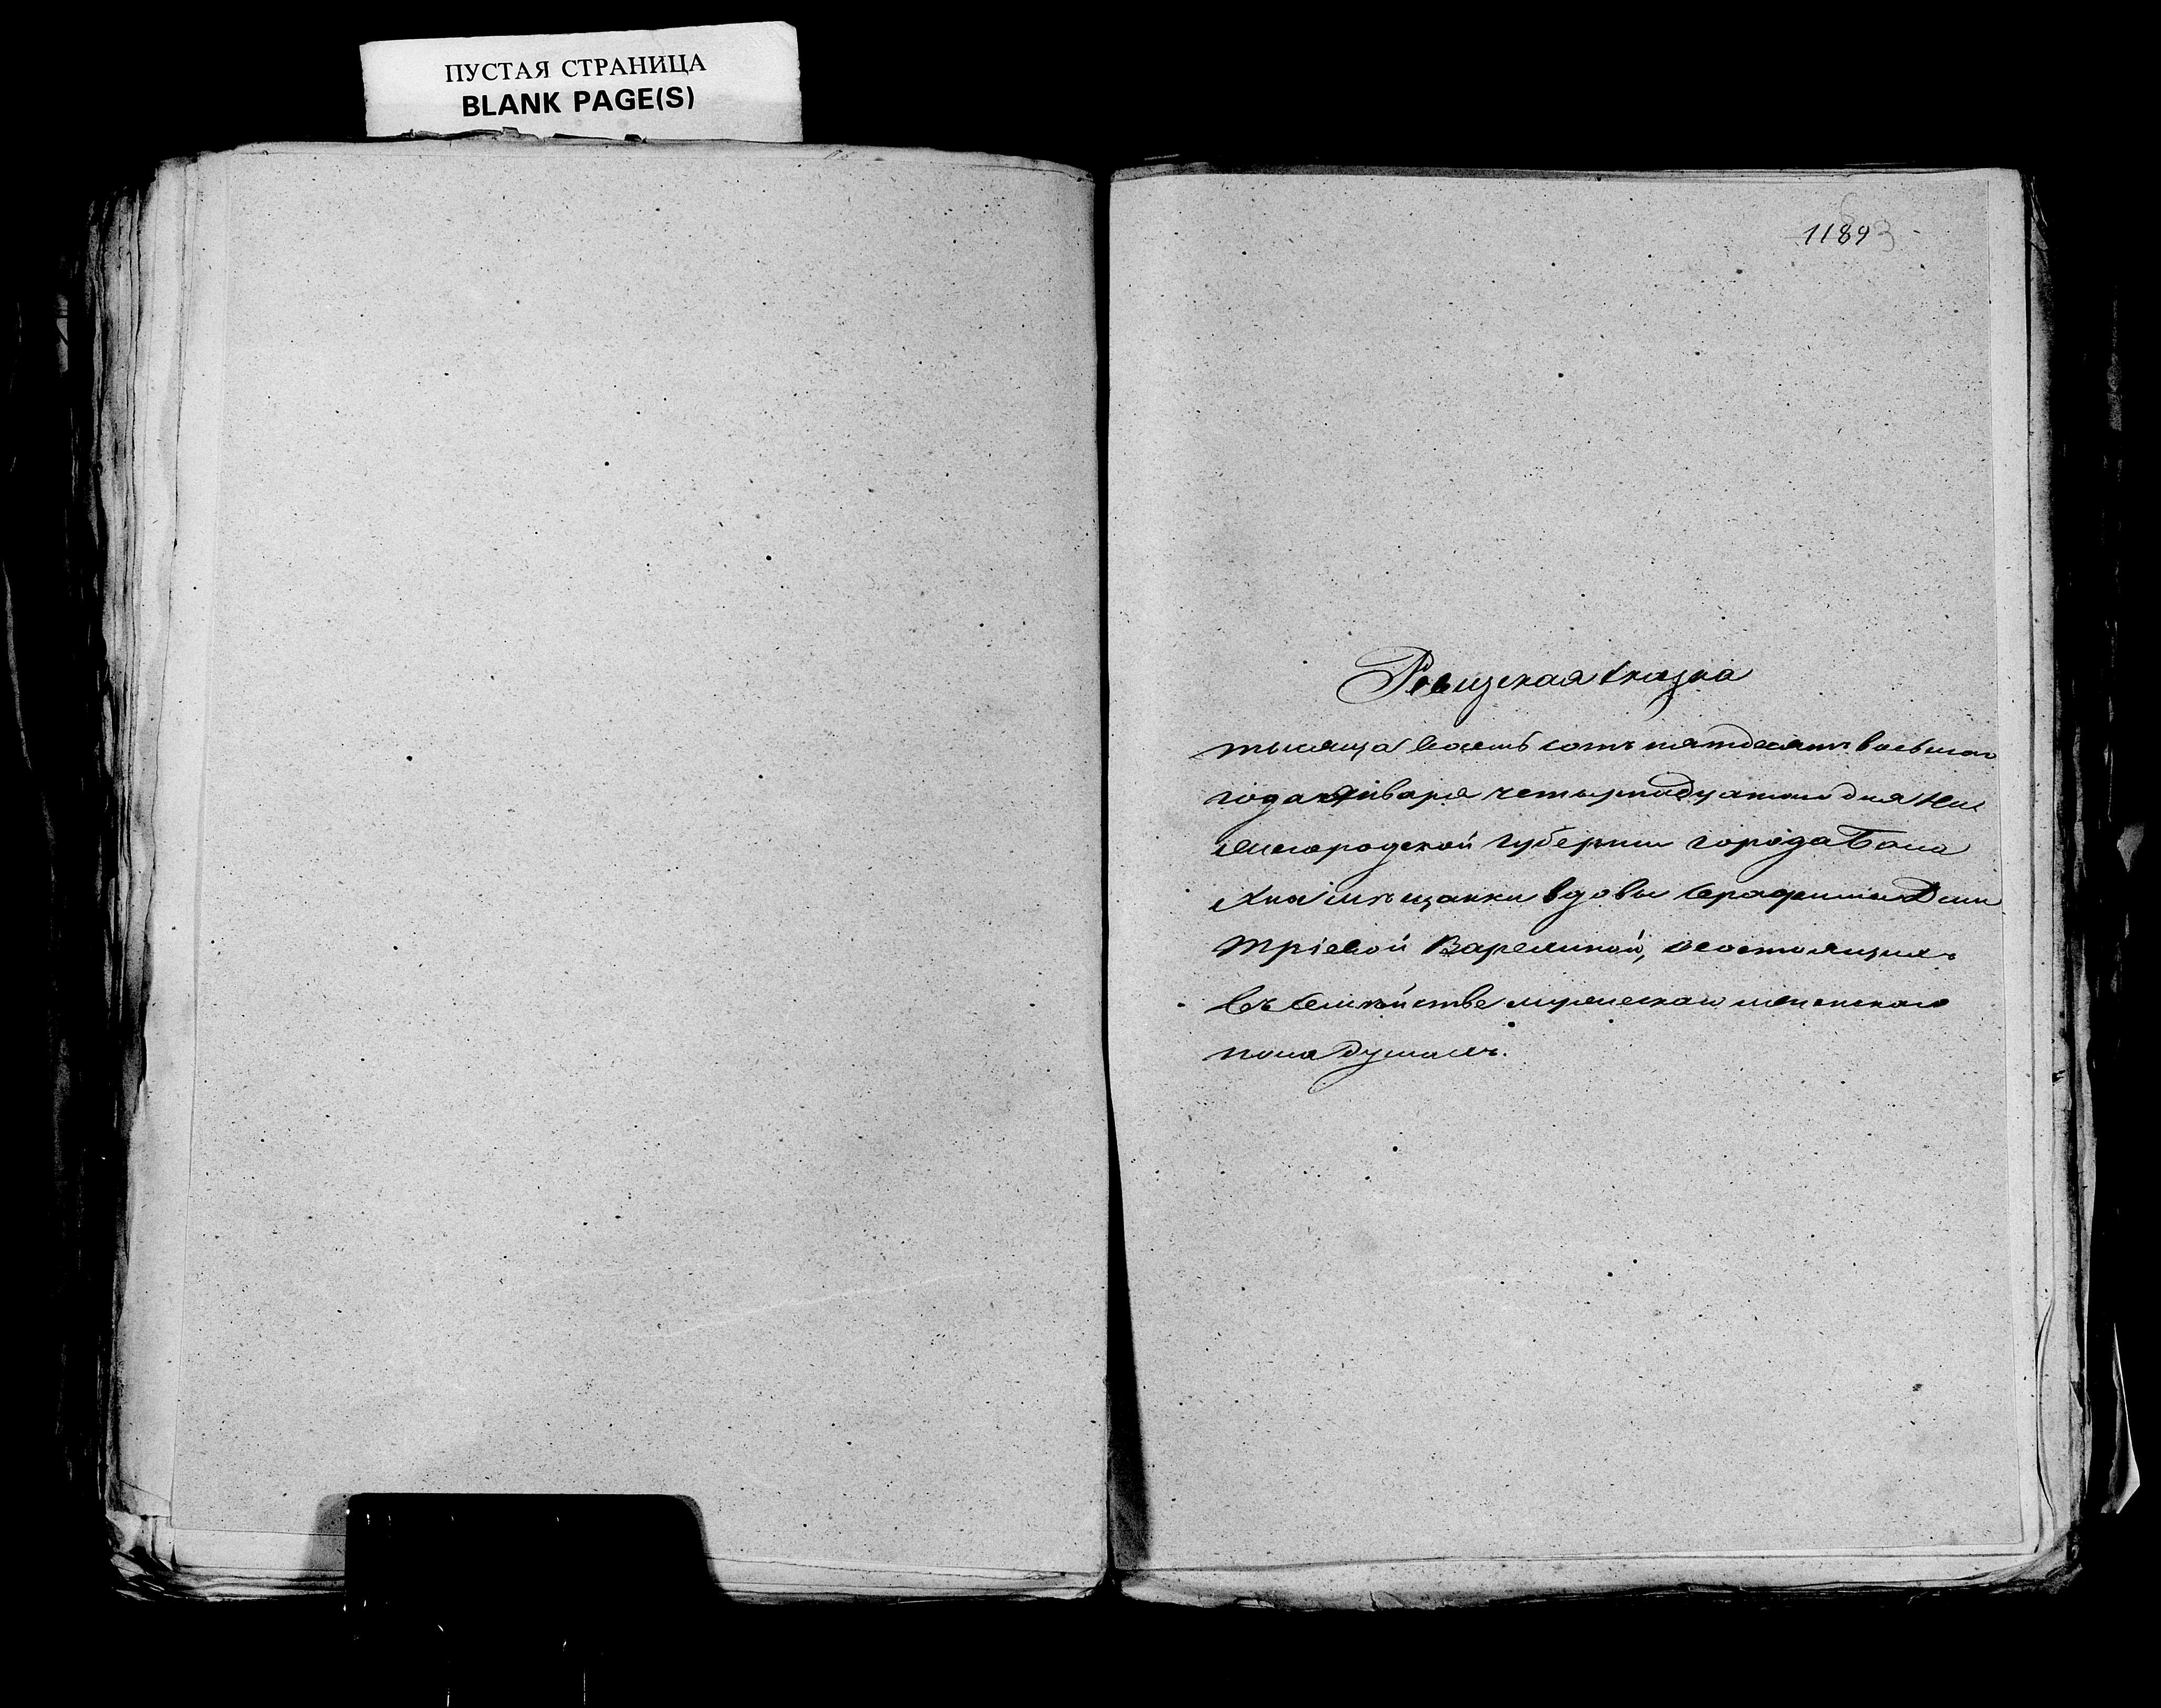 ПУСТАЯ СТРАНИЦА
BLANK PAGE(S)
1189
Ревизская сказка
тысяча восемь сотъ пятдесятъ восьмаго
года января четырнадцатаго дня Ни
жегородской губернии города Бала
хна мѣщанки вдовы Серафимы Дми
тріевой Варелиной, о состоящихъ
въ семѣйстве мужескаго и женскаго
пола душахъ.